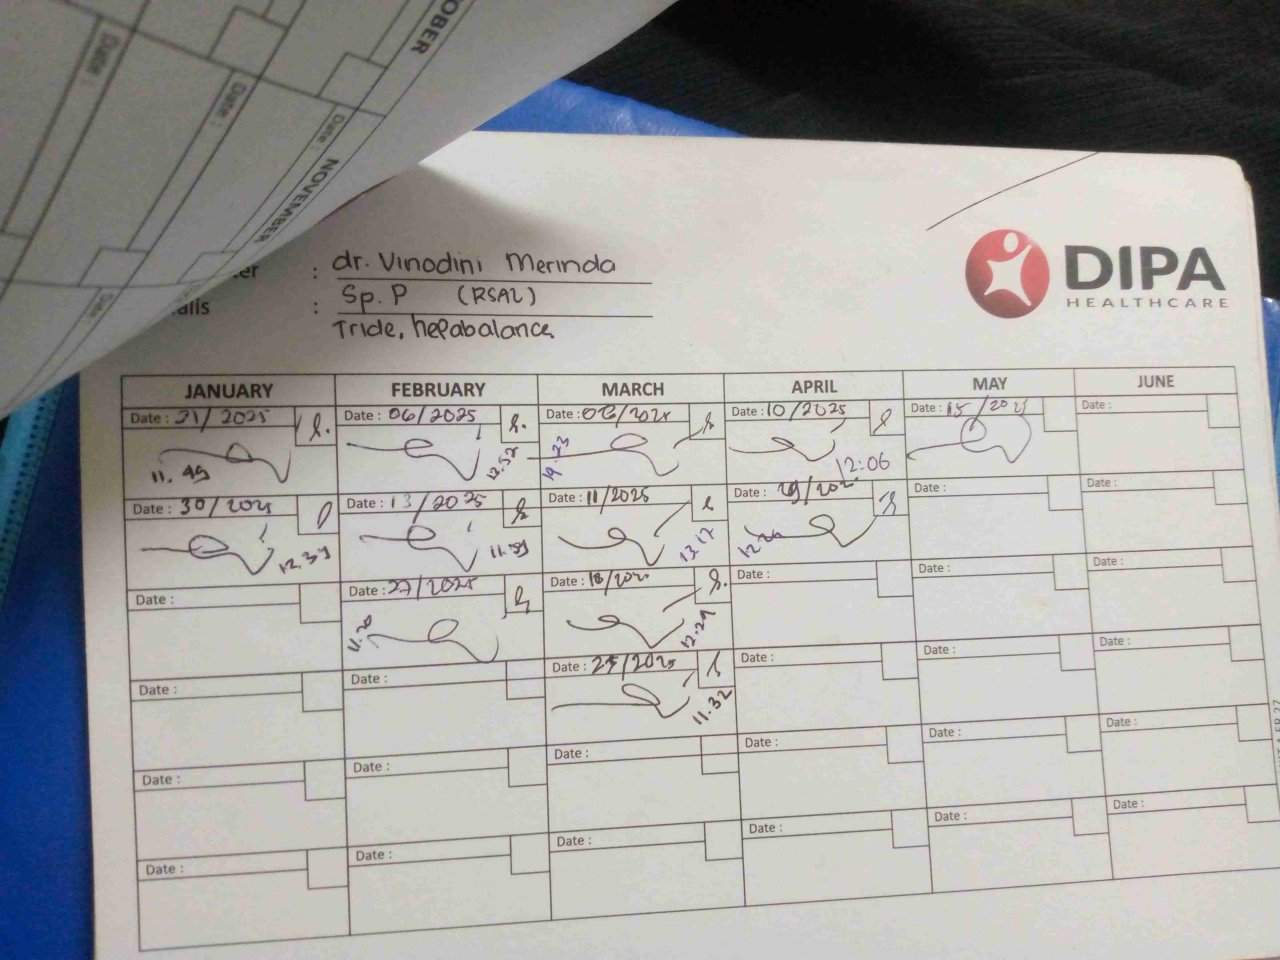 OBER
NOVEMBER
Date :
Date :
Date :
DIPA
HEALTHCARE
er : dr. Vinodini Merinda
alis : Sp. P (RSAL)
Tride, hepabalance
JANUARY FEBRUARY MARCH APRIL MAY JUNE
Date : 21/2025 Date : 06/2025 Date : 06/2025 Date : 10/2025 Date : 15/2025 Date :
11.49 12.52 19.23 12:06
Date : 30/2025 Date : 13/2025 Date : 11/2025 Date : 29/202 Date : Date :
12.39 11.59 13.17
Date : Date : 27/2025 Date : 18/202 Date : Date : Date :
11.20 12.29
Date : Date : Date : 25/2025 Date : Date : Date :
11.32
Date : Date : Date : Date : Date : Date :
Date : Date : Date : Date : Date : Date :